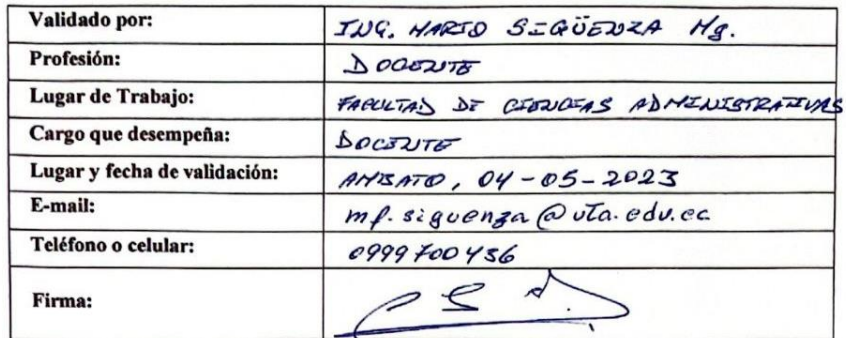 Validado por: ING. MARIO SIGÜENZA Mg.
Profesión: DOCENTE
Lugar de Trabajo: FACULTAD DE CIENCIAS ADMINISTRATIVAS
Cargo que desempeña: DOCENTE
Lugar y fecha de validación: AMBATO, 04-05-2023
E-mail: mf.siguenza@uta.edu.ec
Teléfono o celular: 0999700436
Firma: